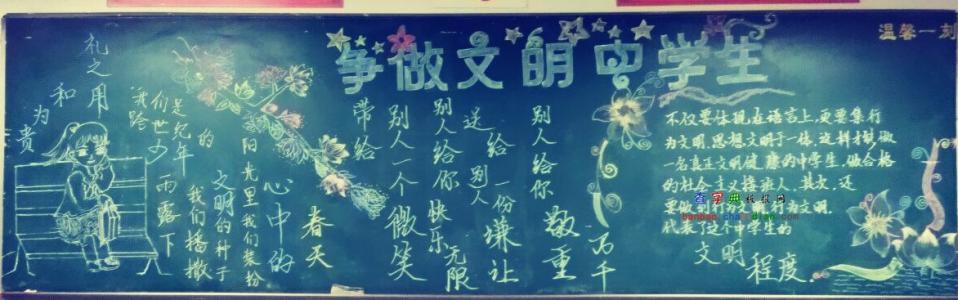 争做文明中学生
温馨一刻
礼之用
和为贵
我们是
跨世纪
的少年
阳光里我们装扮
心中的
春天
雨露下
我们播撒
文明的种子
带给
别人一个微笑
别人给你
快乐无限
送给别人
一份谦让
别人给你
敬重
万千
不仅要体现在语言上,更要集行
为文明、思想文明于一体,这样才能做
一名真正文明健康的中学生,做合格
的社会主义接班人、其次、还
要做到行为
文明.
代表了这个中学生的
文明程度.
查字典 板报网
banbao.chazidian.com